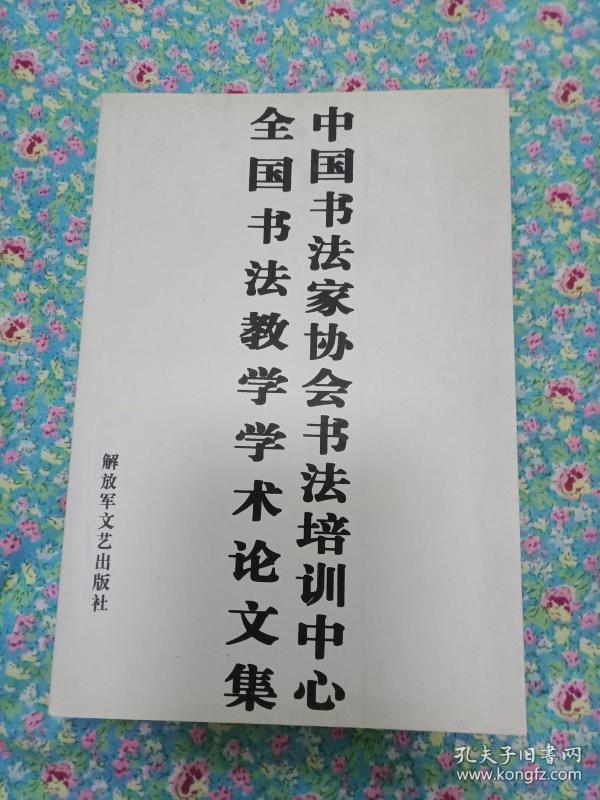 中国书法家协会书法培训中心
全国书法教学学术论文集
解放军文艺出版社
孔夫子旧书网
www.kongfz.com